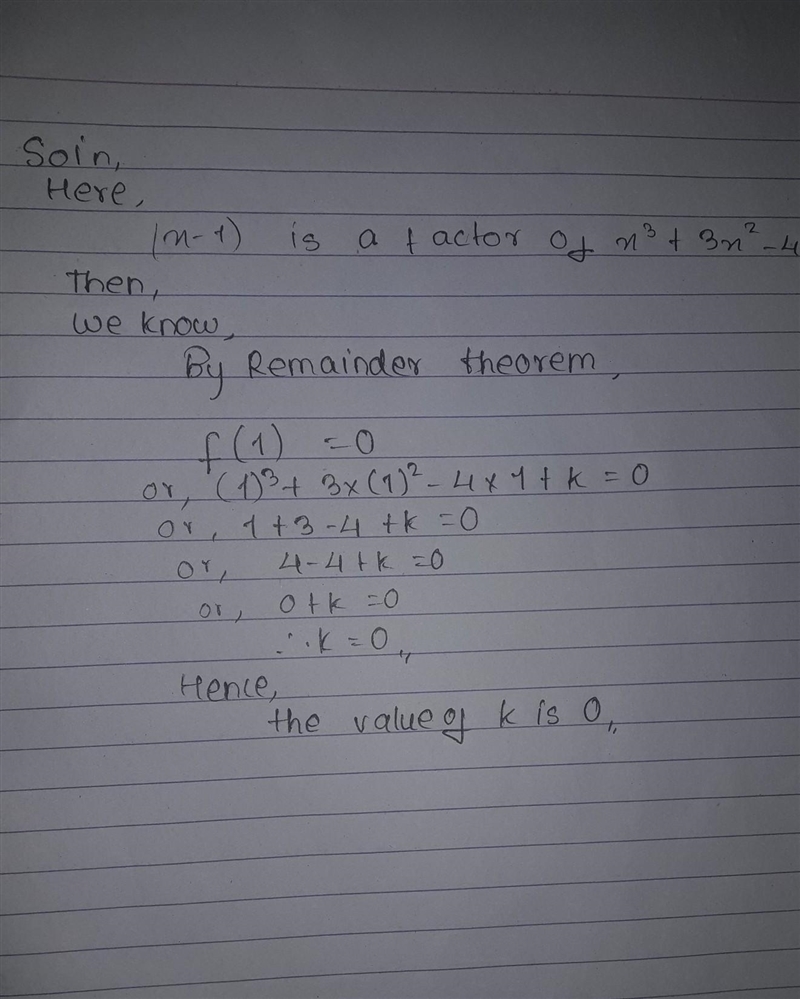 Soln,
Here,
(x-1) is a factor of x³ + 3x² - 4
then,
we know,
By Remainder theorem,
f(1) = 0
or, (1)³ + 3×(1)² - 4×1 + k = 0
or, 1 + 3 - 4 + k = 0
or, 4 - 4 + k = 0
or, 0 + k = 0
∴ k = 0,,
Hence,
the value of k is 0,,